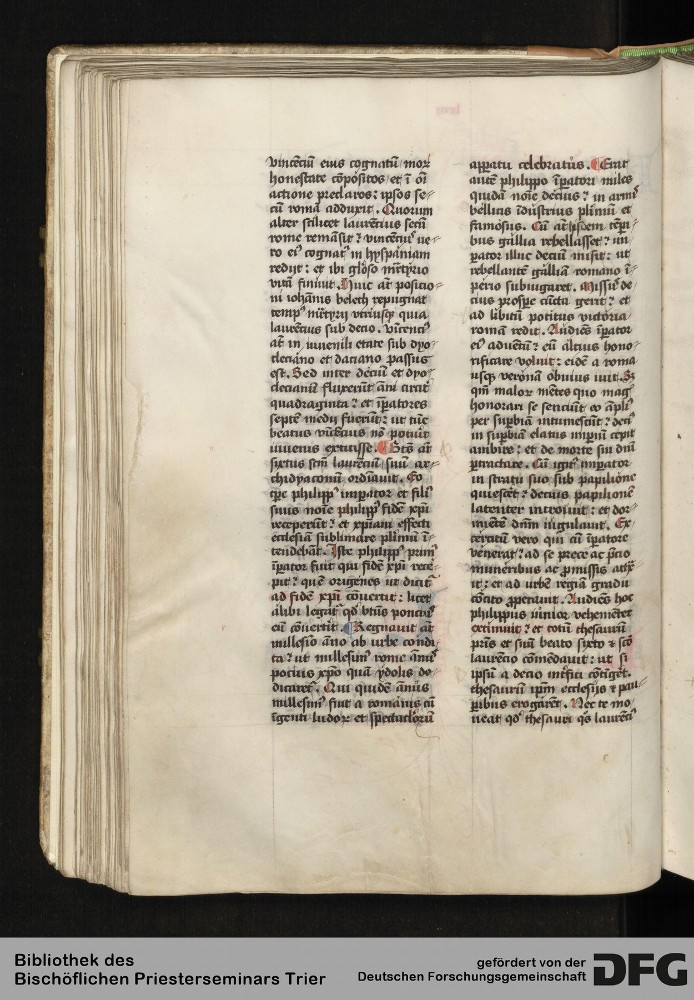 vincēciū eius cognatū mor
honestate cōpōsitos et ī oī
actione preclaros: ipsos se-
cū romā adduxit. Quorum
alter scilicet laurēcius secū
rome remāsit? vincēciꝰ ue-
ro eiꝰ cognatꝰ in hyspāniam
redijt: et ibi gl'oso mr̄tyrio
vitā finiuit. Huic at̄ positio-
ni iohānis beleth repugnat
tempꝰ mr̄tyrij vtriusqꝫ quia
laurēcius sub decio. Vincenciꝰ
at̄ in iuuenili etate sub dyo-
cleciano et daciano passus
est. Sed inter deciū et dyo-
clecianū fluxerūt ānī circit̄
quadraginta? et īpatores
septē medij fuerūt: ut tūc
beatus vincēcius nō potuit
iuuenis extitisse. Btūs at̄
sixtus scm̄ laurēciū suū ar-
chidyaconū ordīauit. Eo
tpe philippꝰ imperator et filiꝰ
suus noīe philippꝰ fidē xpī
receperūt? et xpiani effecti
ecclesiā sublimare plimū ī-
tendebāt. Iste philippꝰ primꝰ
īpator fuit qui fidē xpī rece-
pit? quē origenes ut dicit̄
ad fidē xpī cōuertit: licet
alibi legat̄ qd btūs ponciꝰ
eū cōuertit. Regnauit at̄
millesio āno ab urbe condi-
ta? ut millesimꝰ rome ānꝰ
pocius xpo quā ydolis de-
dicaret̄. Qui quidē ānus
millesimꝰ fuit a romanis cū
īgenti ludor et spectaclorū
apparatu celebratus. Erat
autē philippo īpatori miles
quidā noīe decius? in armī
bellicis īdustrius plīmū et
famosus. Cū at̄ ipsdem tēpi-
bus gallia rebellasset? im-
pator illuc deciū misit: ut
rebellantē galliā romano ī-
perio subiugaret. Missꝰ de-
cius prospe cūcta gerit? et
ad libitū potitus victoria
romā redit. Audiēs īpator
eiꝰ aduētū? eū altius hono-
rificare voluit: eidē a roma
usqꝫ veronā obuius iuit. Sꝫ
qm̄ malor mētes quo magꝭ
honorari se senciūt eo āpliꝰ
per supbiā intumescūt? deciꝰ
in supbiā elatus impiū cepit
ambire? et de morte sui dnī
ptractare. Cū igit̄ imperator
in stratu suo sub papilione
quiescet? decius papilionē
latenter introiuit: et dor-
mientē dnm̄ iugulauit. Ex
ercitū vero qui cū īpatore
venerat? ad se prece ac pcio
muneribus ac pmissis atꝩ
it: et ad urbē regiā gradu
cōcito properauit. Audiēs hoc
philippus iunior vehementer
extimuit? et totū thesaurū
prīs et suū beato sixto et sco
laurencio cōmēdauit: ut si
ipsū a decio intfici cōtīget̄.
thesaurū ipm̄ ecclesijs et pau-
pibus erogaret. Nec te mo-
ueat qd thesauri qs laurēciꝰ
Bibliothek des
Bischöflichen Priesterseminars Trier
gefördert von der
Deutschen Forschungsgemeinschaft
DFG